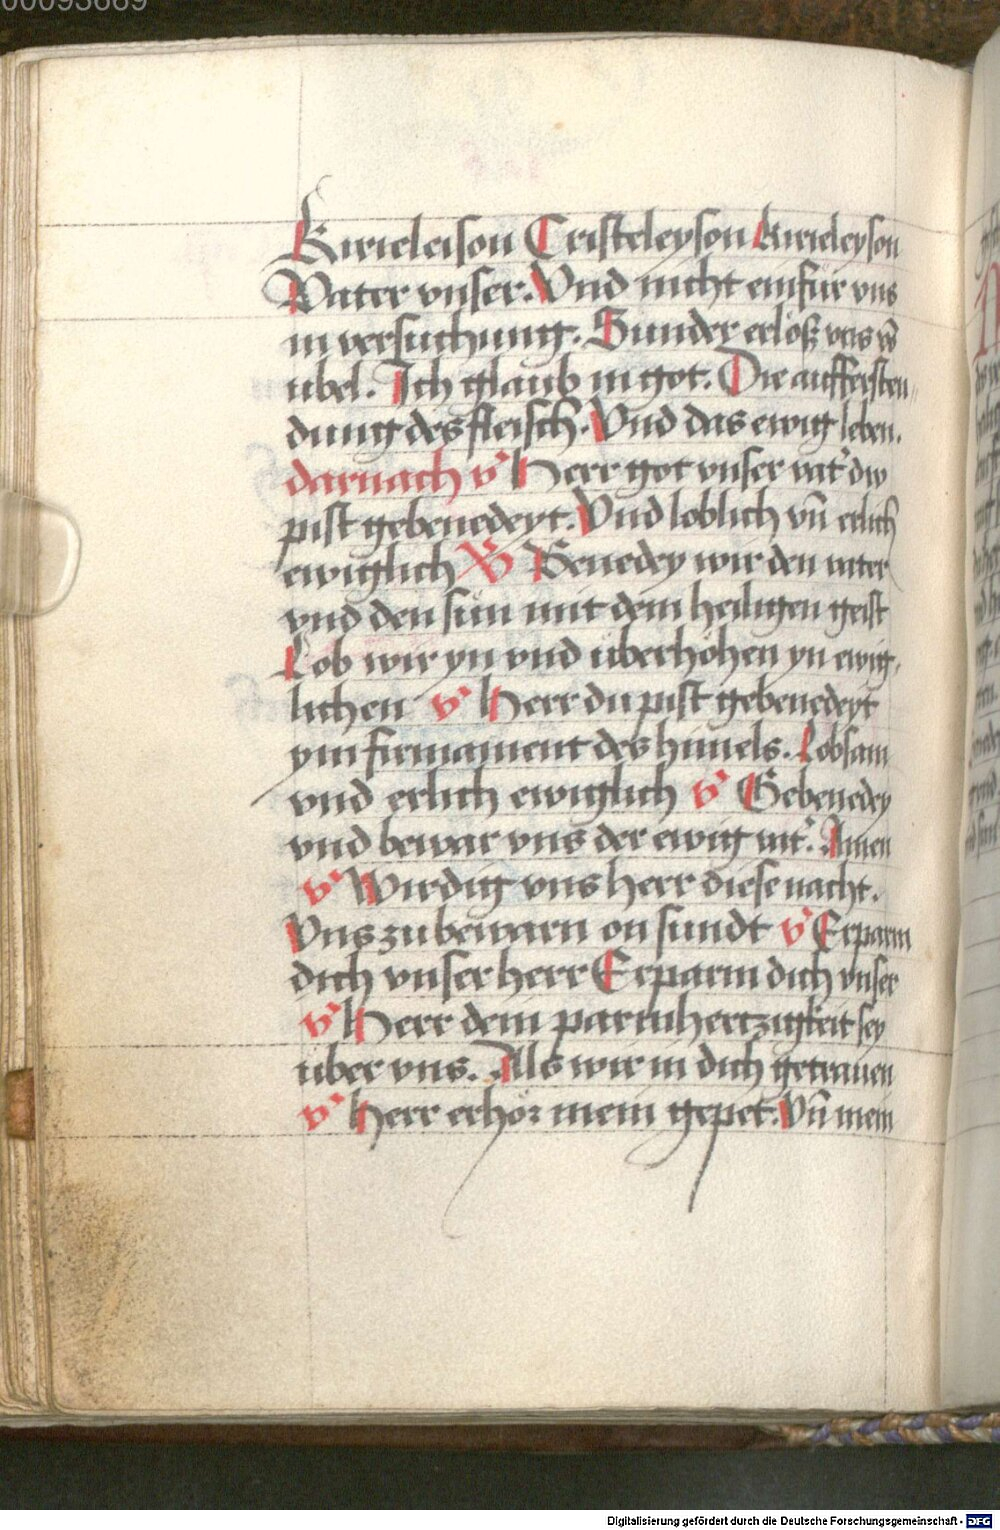 00093669
Kirieleison Cristeleyson Kirieleyson
Vater vnser. Vnd nicht einfur vns
in versuchung. Sunder erlosz vns vō
ubel. Ich glaub in got. Die auffersten,
dung des fleisch. Vnd das ewig leben.
darnach v' Herr got vnser vat' dw
pist gebenedeyt. Vnd loblich vn̄ erlich
ewiglich V' Benedey wir den vater
vnd den sun mit dem heiligen geist
Lob wir yn vnd uberhohen yn ewig,
lichen v' Herr du pist gebenedeyt
ym firmament des himels. Lobsam
vnd erlich ewiglich v' Gebenedey
vnd bewar vns der ewig vat'. Amen
v' Wirdig vns herr diese nacht.
Vns zu bewarn on sundt v' Erparm
dich vnser herr Erparm dich vnser
v' Herr dein parmhertzigkeit sey
uber vns. Als wir in dich getrauen
v' Herr erhor mein gepet. Vn̄ mein
Digitalisierung gefördert durch die Deutsche Forschungsgemeinschaft - DFG